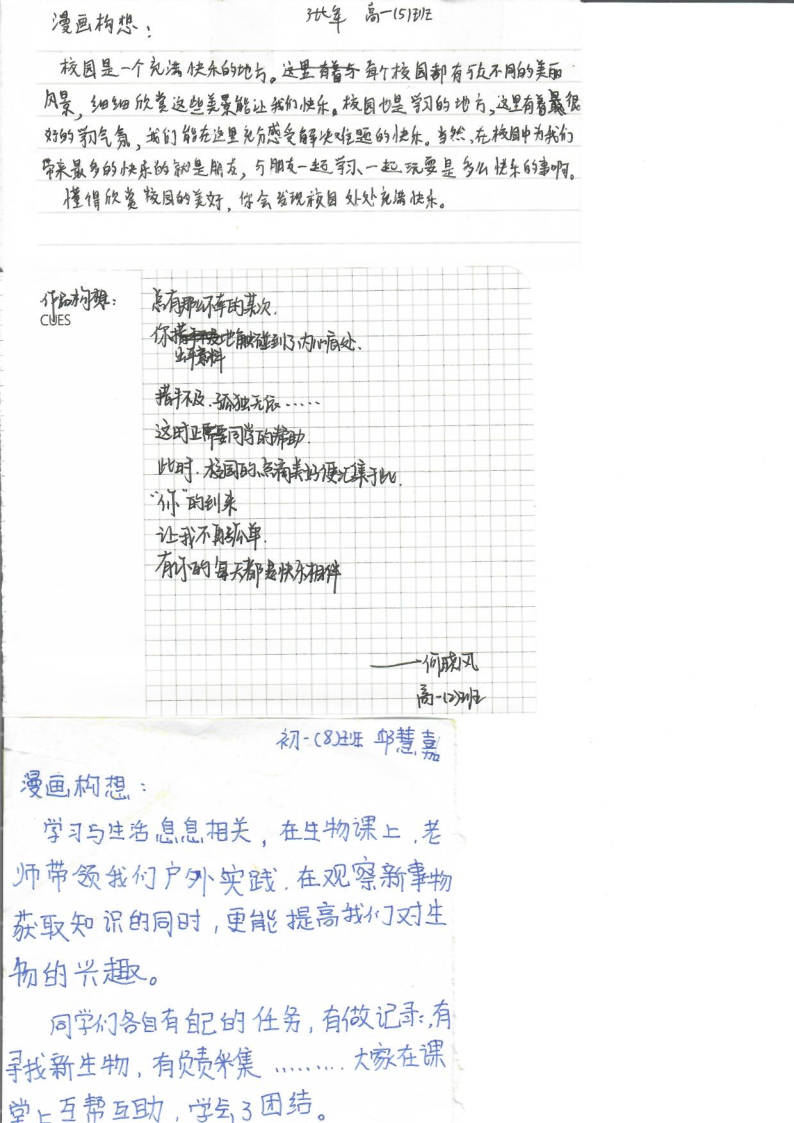 漫画构想：
高一(5)班
校园是一个充满快乐的地方。这里有着每个校园都有与众不同的美丽
风景，细细欣赏这些美景能让我们快乐。校园也是学习的地方，这里有着最很
好的学习气氛，我们能在这里充分感受解决难题的快乐。当然，在校园中为我们
带来最多的快乐的就是朋友，与朋友一起学习、一起玩耍是多么快乐的事啊。
懂得欣赏校园的美好，你会发现校园处处充满快乐。
作品构想：
CUES
总有那么不幸的某次，
你措手不及地触碰到了内心底处、
出乎意料
措手不及、孤独无辰……
这时正需要同学的帮助.
此时.校园的点滴美好便汇集于此.
“你”的到来
让我不再孤单.
有你的每天都是快乐相伴
——何晓风
高一(2)班
初一(8)班 邱慧嘉
漫画构想：
学习与生活息息相关，在生物课上，老
师带领我们户外实践.在观察新事物
获取知识的同时，更能提高我们对生
物的兴趣。
同学们各自有自己的任务，有做记录，有
寻找新生物，有负责采集………大家在课
堂上互帮互助，学会了团结。